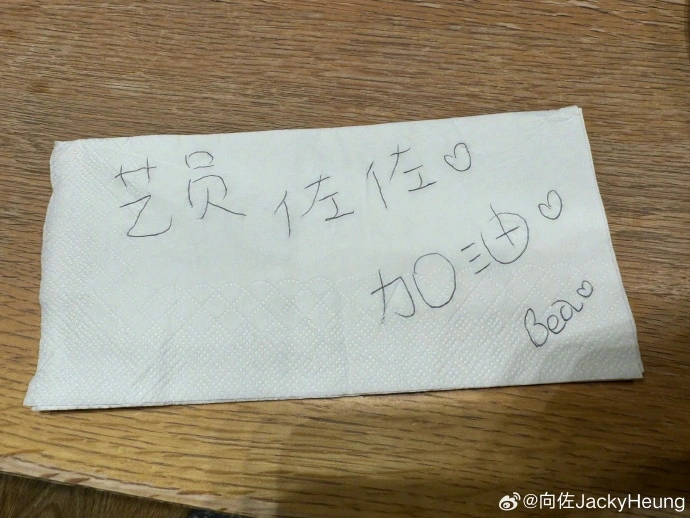 艺员 佐佐♡
加油♡
Bea♡
@向佐JackyHeung